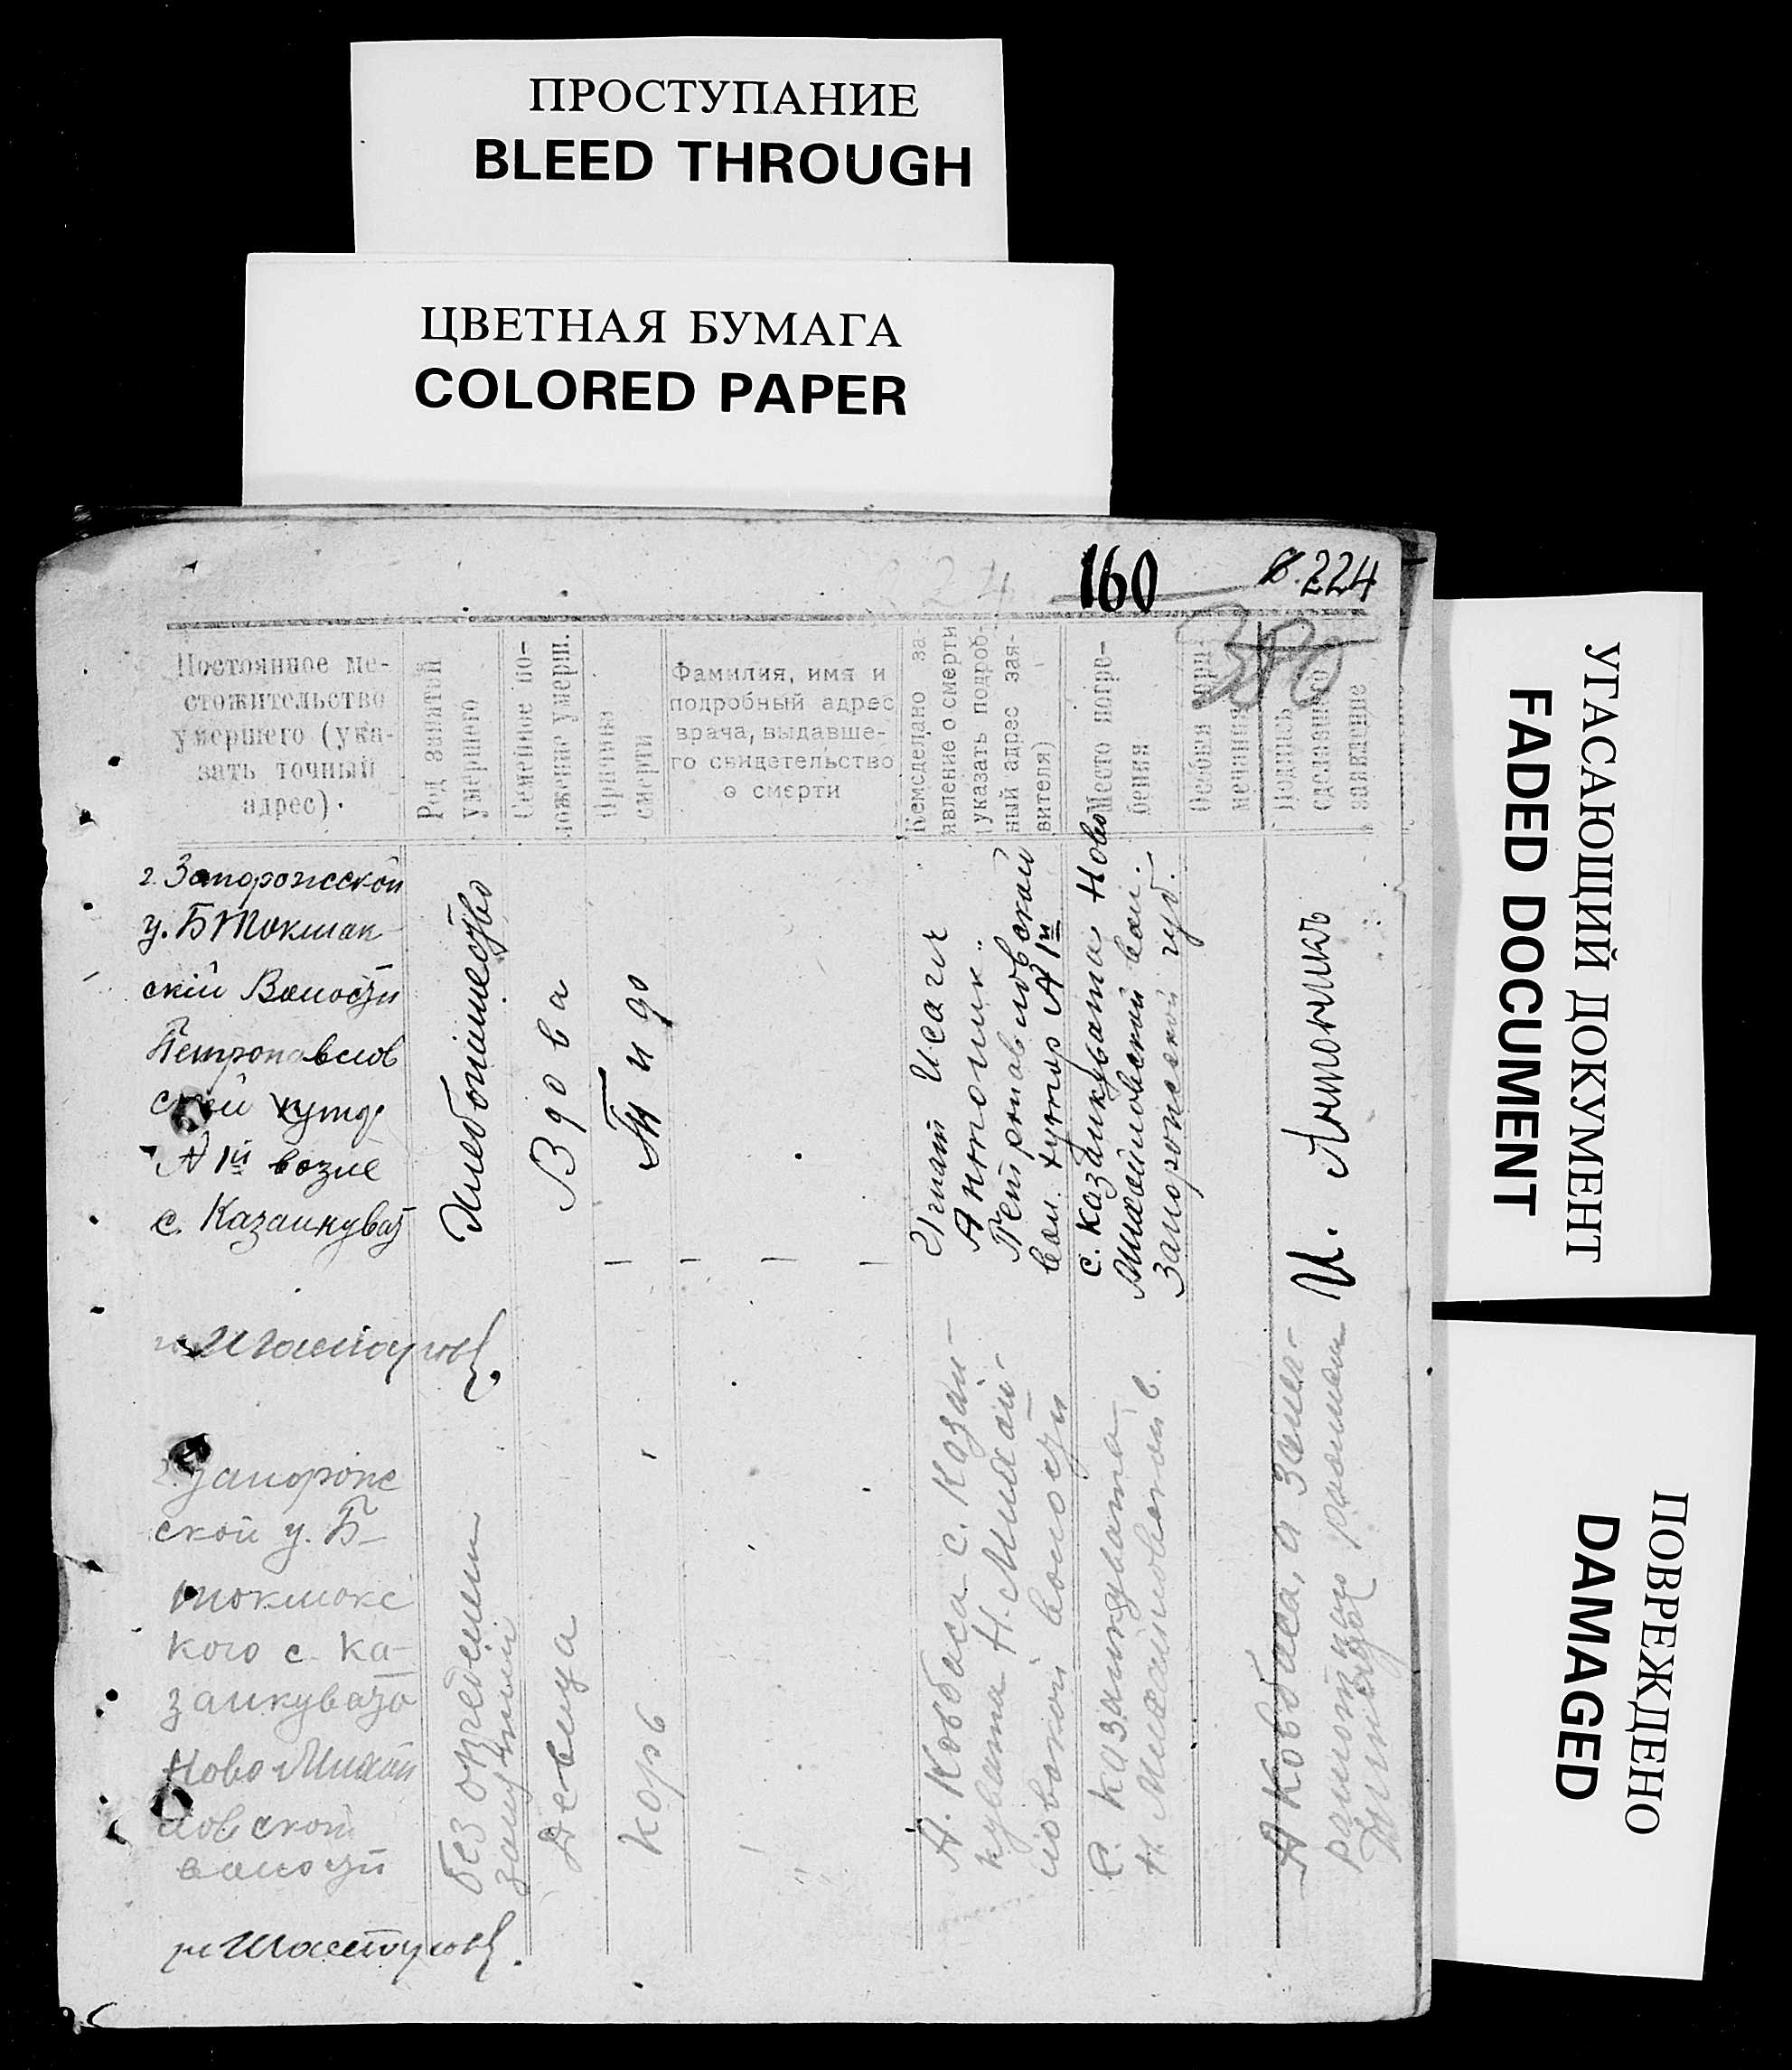 ПРОСТУПАНИЕ
BLEED THROUGH
ЦВЕТНАЯ БУМАГА
COLORED PAPER
УГАСАЮЩИЙ ДОКУМЕНТ
FADED DOCUMENT
ПОВРЕЖДЕНО
DAMAGED
160
224
Постоянное ме-
стожительство
умершего (ука-
зать точный
адрес).
Род занятий
умершего
Семейное по-
ложение умерш.
Причина
смерти
Фамилия, имя и
подробный адрес
врача, выдавше-
го свидетельство
о смерти
Кем сделано за-
явление о смерти
(указать подроб-
ный адрес зая-
вителя)
Место погре-
бения
Особыя
мечания
Подпись
сделавшего
заявление
г. Запорожской
у. Б Токмак
скій Волости
Петропавлов
ской хутор
№ 1й возле
с. Казанкуват
Хлебопашество
Вдова
Тиф
Игнат Исаич
Антоник
вол. хутор № 1й
с. Казанкувата Ново
Михайловской вол.
Запорожской губ.
И. Антоникъ
Запорож
ской у. Б-
токмакс
кого с. Ка-
занкувато
Ново Михай
ловской
волости
без определен
занятий
Девица
Корь
А. Ковбаса с. Казан-
кувата Н. Михай-
ловской волости
С. Казанкувата
Н. Михайловской в.
А Ковбаса, а за не-